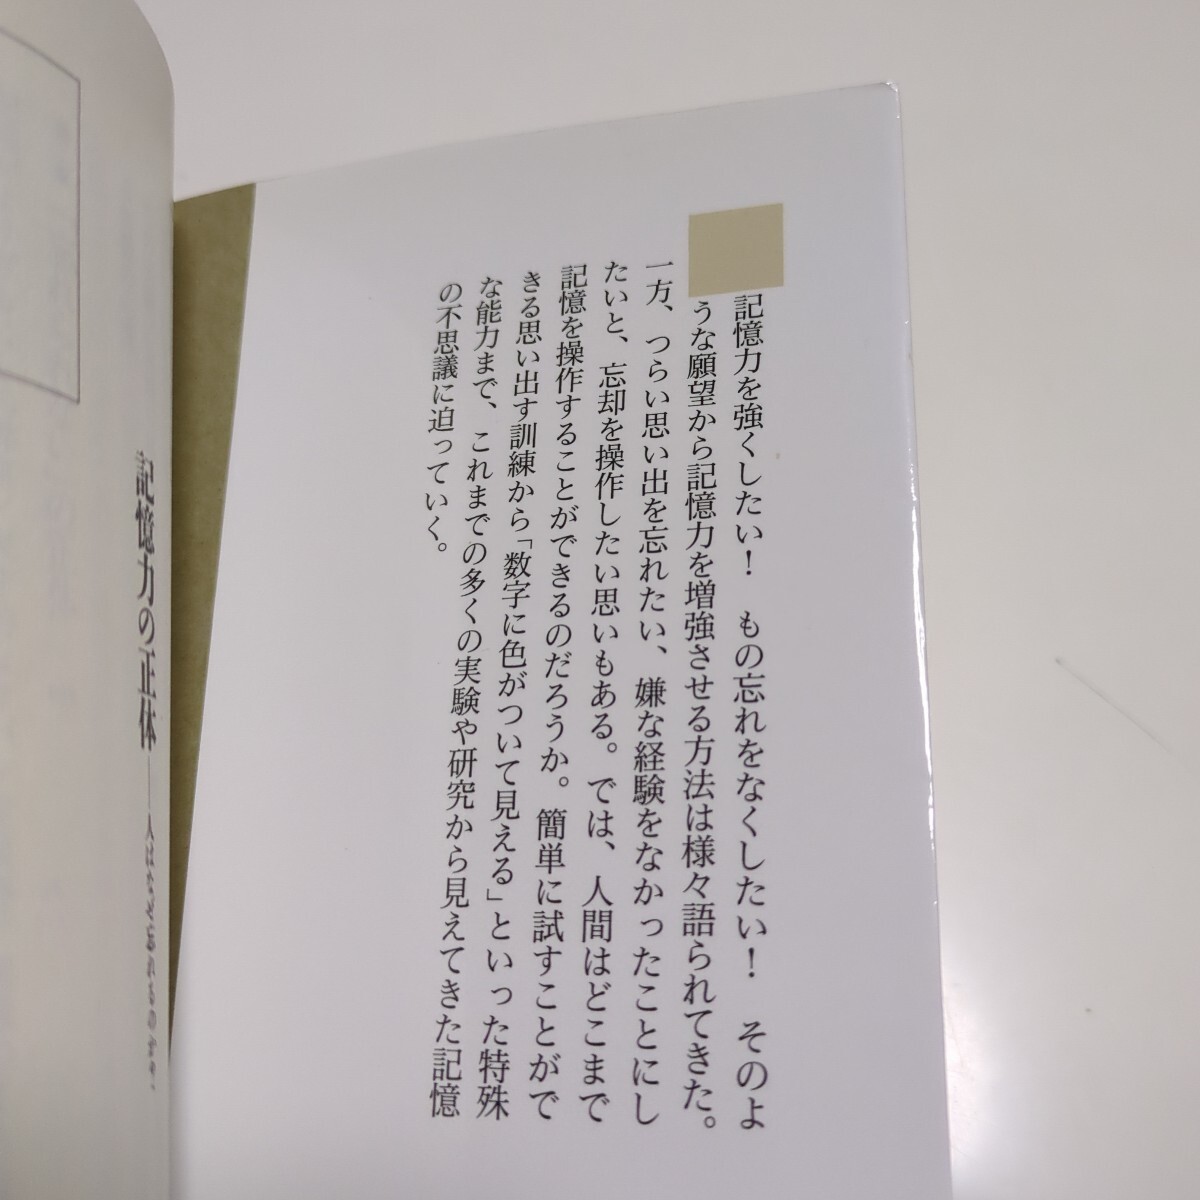 記憶力を強くしたい！　もの忘れをなくしたい！　そのよ
うな願望から記憶力を増強させる方法は様々語られてきた。
一方、つらい思い出を忘れたい、嫌な経験をなかったことにし
たいと、忘却を操作したい思いもある。では、人間はどこまで
記憶を操作することができるのだろうか。簡単に試すことがで
きる思い出す訓練から「数字に色がついて見える」といった特殊
な能力まで、これまでの多くの実験や研究から見えてきた記憶
の不思議に迫っていく。
記憶力の正体――人はなぜ忘れるのか？